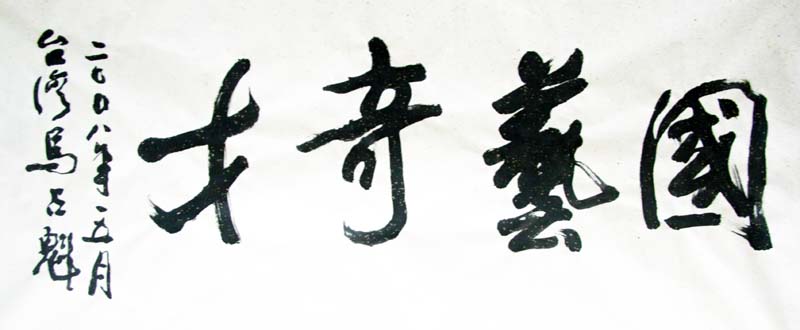 國藝奇才
二〇〇八年五月
台灣馬占魁